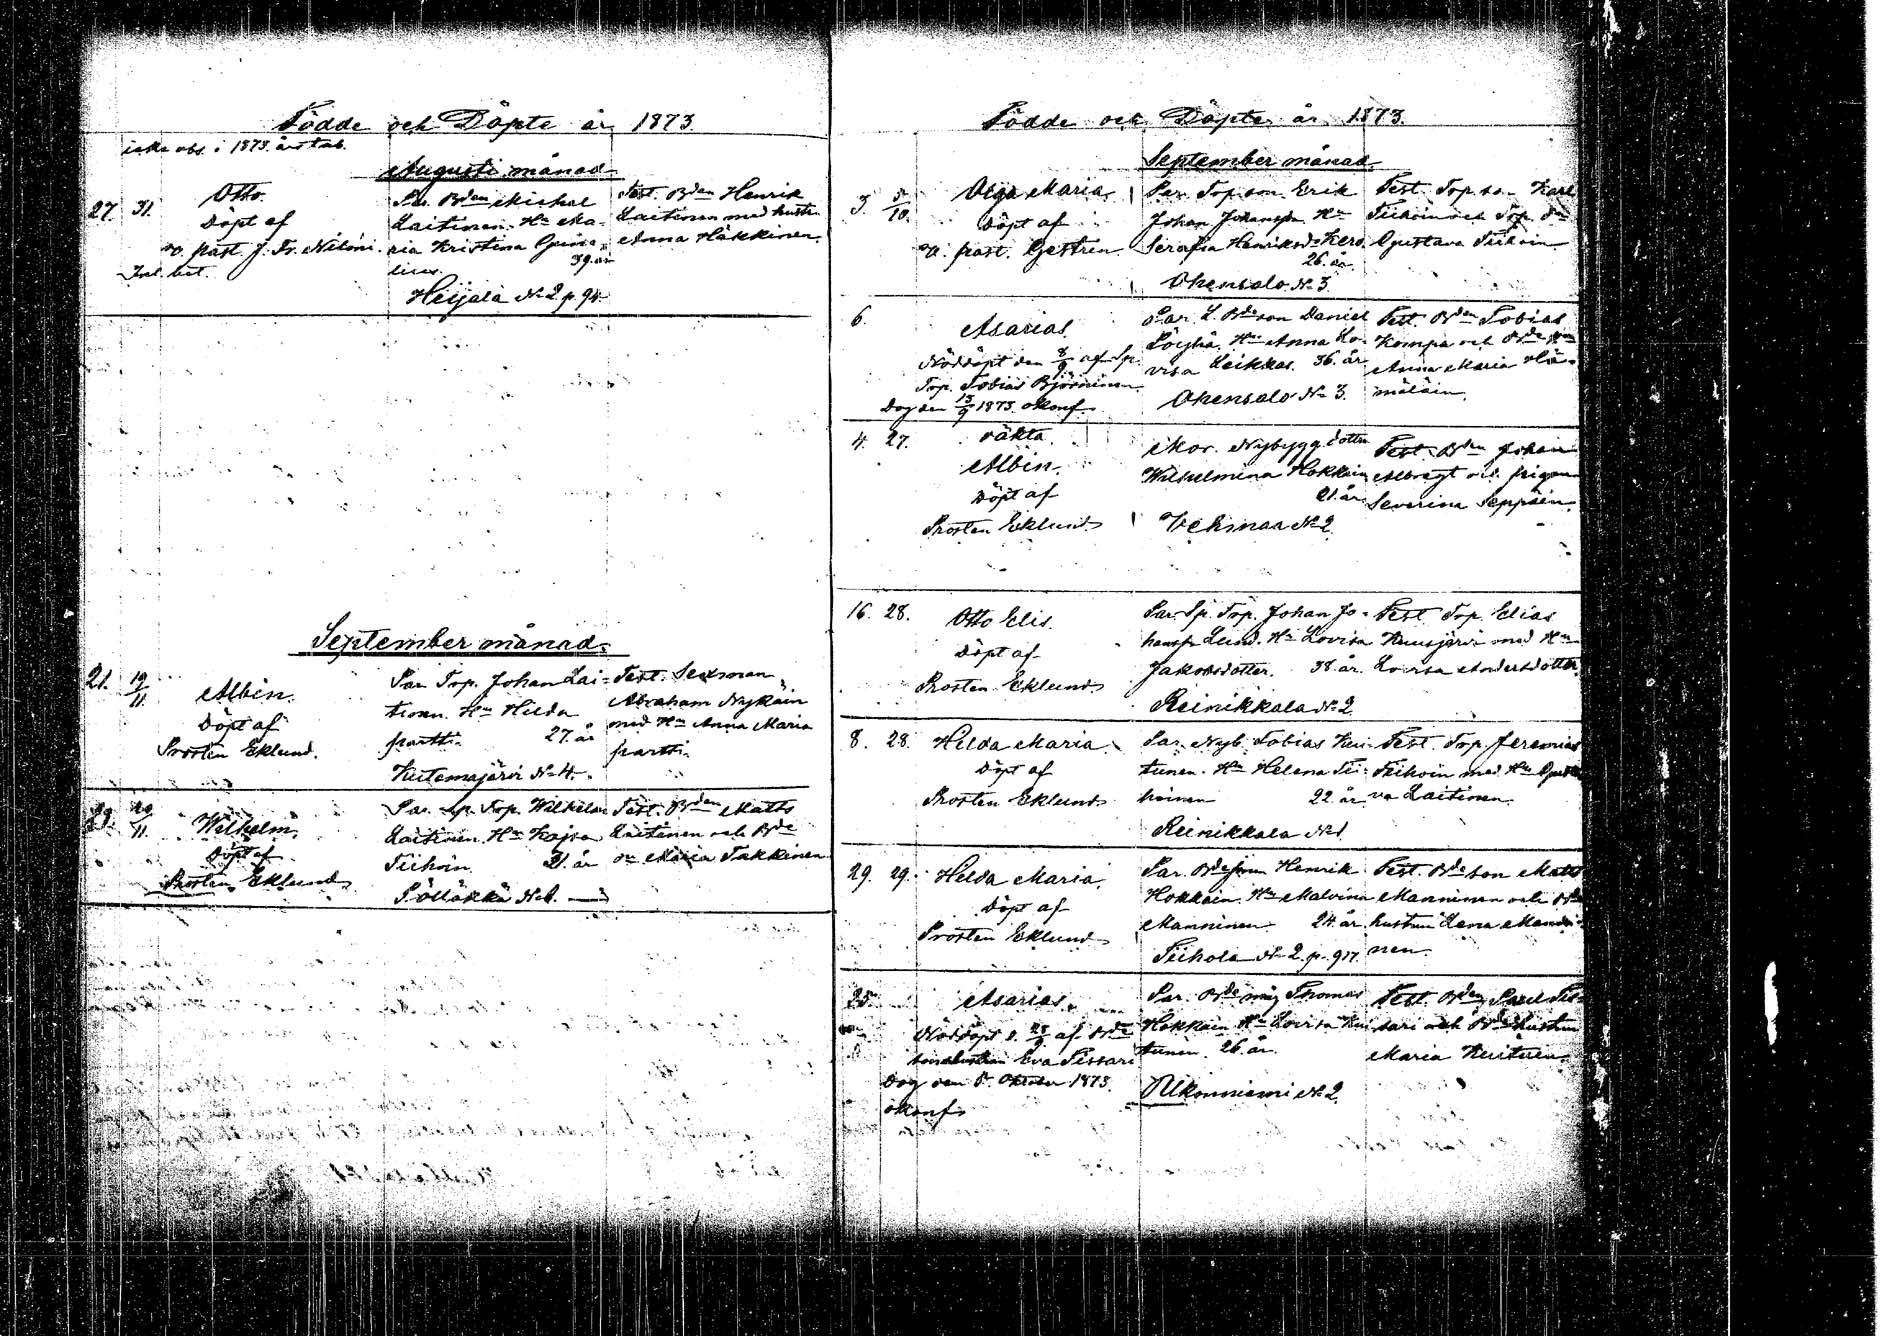 Födde och Döpte år 1873.
icke obs. i 1873. års tab.
Augusti månad
27. 31. Otto.
Döpt af
v. past. J. Fr.
Par. Bden Michel
Laitinen. Hu Ma-
ria Kristina
39. år
Heijala No 2 p. 94
Test. Bden Henrik
Laitinen med hustru
Anna Häkkinen.
September månad
21. 19/11. Albin.
Döpt af
Prosten Eklund.
Par. Torp. Johan Lai-
tinen. Hu Hilda
Partti. 27. år
Kutemajärvi No 4.
Test. Sexman
Abraham Nykäin
med Hu Anna Maria
Partti.
23. 20/11 Wilhelm.
Döpt af
Prosten Eklund
Par. Sp. Torp. Wilhelm
Laitinen. Hu Kajsa
Tiihoin 21. år
Pölläkkä No 1.
Test. Bden Matts
Laitinen och Bde
Maria Takkinen
Födde och Döpte år 1873.
September månad.
3. 5/10. Olga Maria.
Döpt af
v. past. Gestrin
Par. Torp. son Erik
Johan Johansson Hu
Serafia Henriksdr
26. år.
Okensalo No 3
Test. Torp. son Karl
Tiihoin och Torp. dr
Gustava Tiihoin
6. Asarias.
Nöddöpt den 8/9 af Sp.
Torp. Tobias Björninen
Dog den 15/9 1873. okonf.
Par. L. Bdeson Daniel
Löyhä. Hu Anna Lo-
visa Leikkas. 36. år
Okensalo No 3.
Test. Bden Tobias
Kompa och Bde
Anna Maria Hä-
mäläin.
4. 27. oäkta.
Albin.
Döpt af
Prosten Eklund
Mor. Nybygg. dotter
Wilhelmina Hokkain
21. år
Vehmaa No 2.
Test. Bden Johan
Albregt och pigan
Severina Seppäin.
16. 28. Otto Elis.
Döpt af
Prosten Eklund
Par. Sp. Torp. Johan Jo-
hansson Lund. Hu Lovisa
Jakobsdotter. 38. år.
Reinikkala No 2
Test. Torp. Elias
Kuusjärvi med Hu
Lovisa Andersdotter.
8. 28. Hilda Maria.
Döpt af
Prosten Eklund
Par. Nyb. Tobias Kui-
tunen. Hu Helena Tii-
hoinen 22. år
Reinikkala No 1
Test. Torp. Jeremias
Tiihoin med Hu Gusta
va Laitinen.
29. 29. Hilda Maria.
Döpt af
Prosten Eklund
Par. Bdeson Henrik
Hokkain. Hu Malvina
Manninen 24. år.
Tiihola No 2. p. 917.
Test. Bdeson Matts
Manninen och Bde
hustrun Lena Manni-
nen.
25. Asarias.
Nöddöpt d. 28/9 af Bde
sonshustrun Eva Tissari
Dog den 8. Oktober 1873.
okonf.
Par. Bde måg Thomas
Hokkain Hu Lovisa Kui
tunen. 26. år.
Ukonniemi No 2.
Test. Bden Paul Tis-
sari och Bde hustrun
Maria Kuituin.